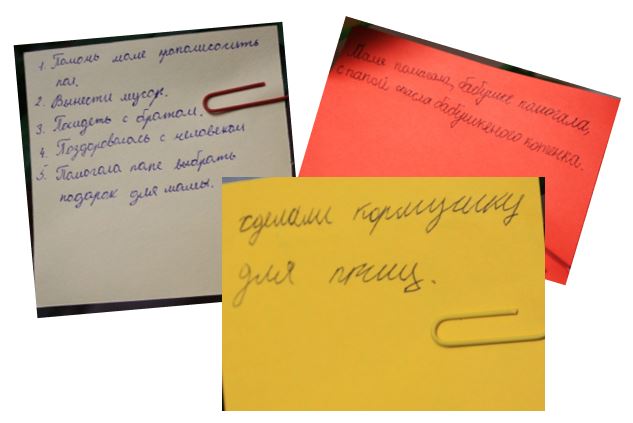 1. Помочь маме пропылесосить
пол.
2. Вынести мусор.
3. Посидеть с братом.
4. Поздоровалась с человеком
5. Помогала папе выбрать
подарок для мамы.
Маме помогала, бабушке помогала,
с папой спасла бабушкиного котенка.
сделали кормушку
для птиц.